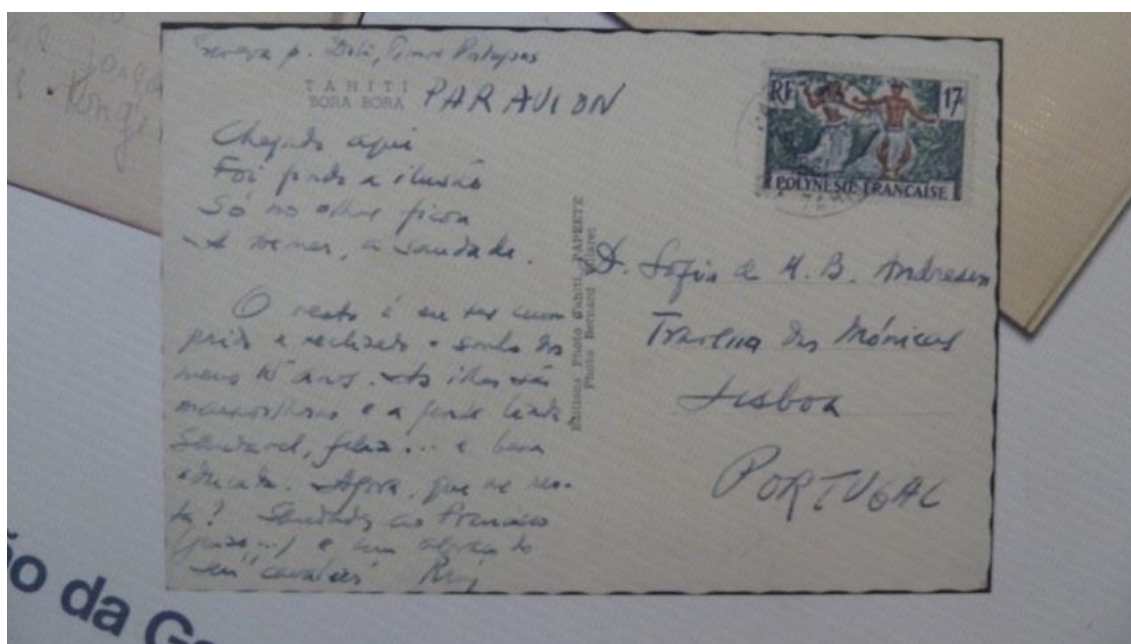 Escreva p. Dili, Timor Português
TAHITI
BORA BORA
PAR AVION
Chegado aqui
Foi-se a ilusão
Só no olhar ficou
A tremer, a saudade.
O resto é eu ter cum
prido e realizado o sonho dos
meus 15 anos. As ilhas são
maravilhosas e a gente linda
Saudavel, feliz... e bem
educada. Agora, que me res-
ta? Saudades ao Francisco
e um abraço do
seu "cavaleiro" Ruy
Editions Photo Tahiti, PAPEETE
Photo Bernard Villaret
RF
17
POLYNESIE FRANCAISE
D. Sofia de M. B. Andresen
Travessa das Mónicas
Lisboa
PORTUGAL
ão da G